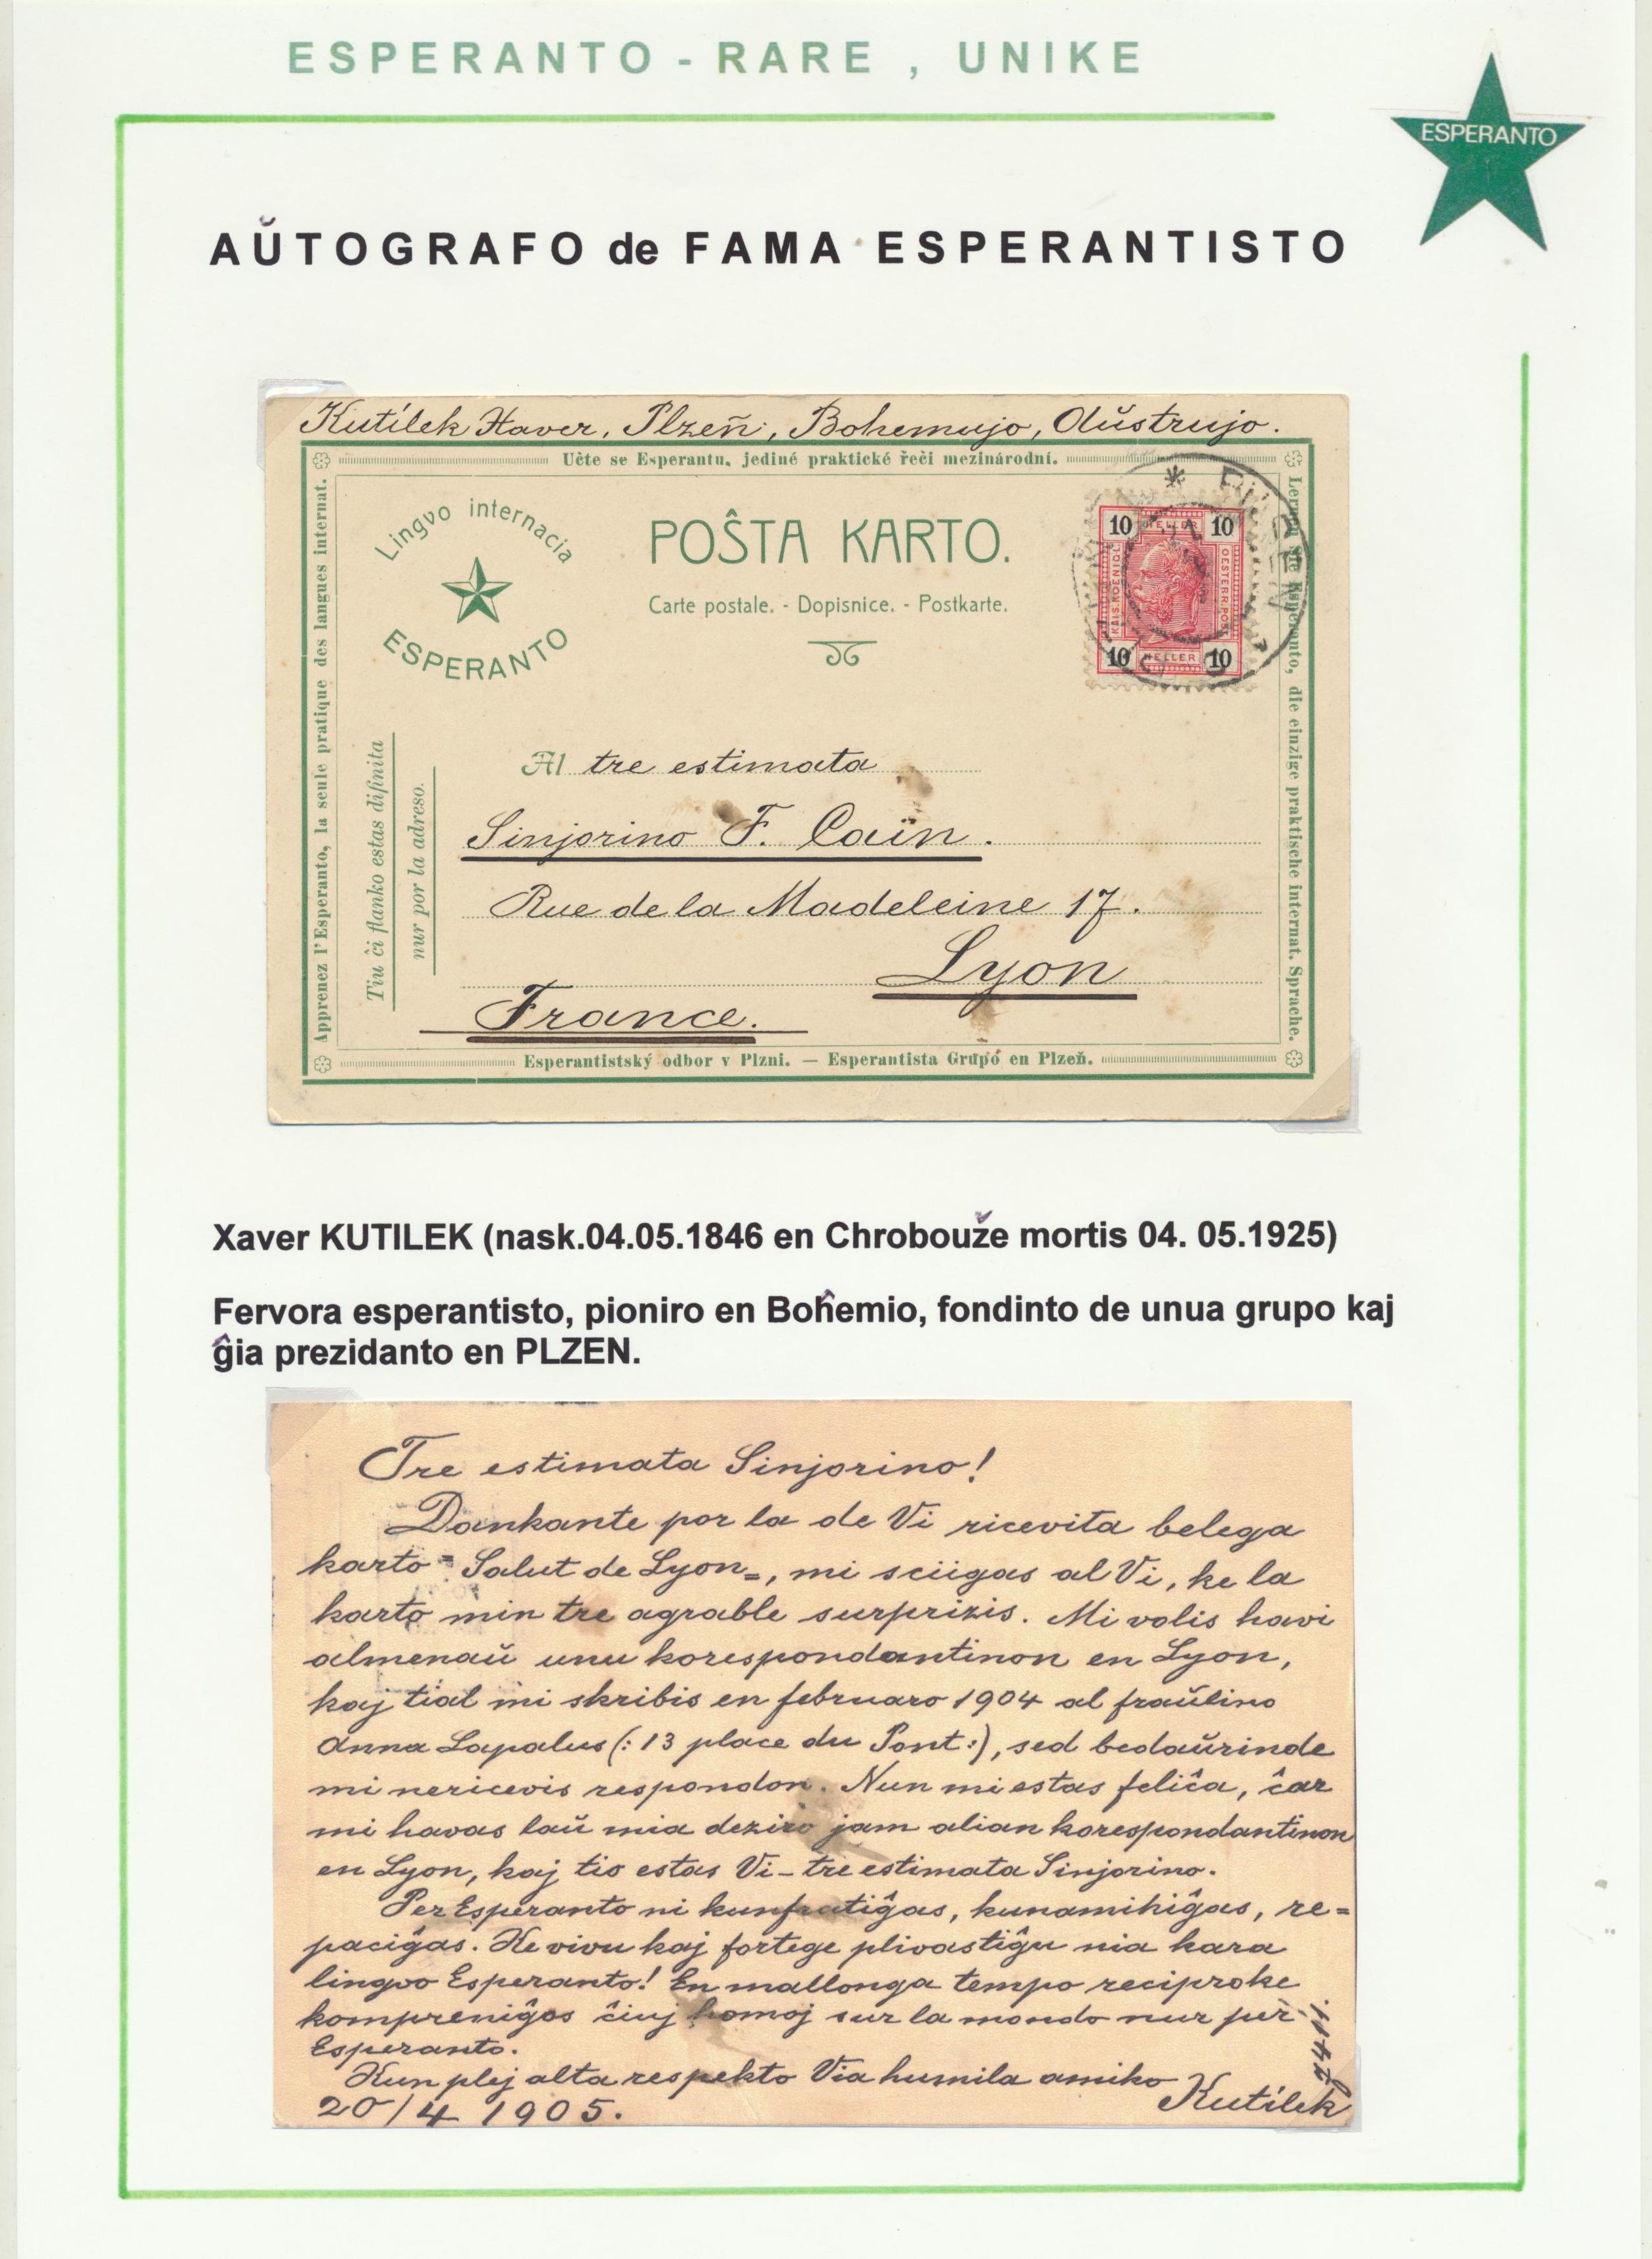 ESPERANTO - RARE , UNIKE
ESPERANTO
AŬTOGRAFO de FAMA ESPERANTISTO
Kutílek Xaver, Plzeň, Bohemujo, Aŭstrujo.
Učte se Esperantu, jediné praktické řeči mezinárodní.
Apprenez l'Esperanto, la seule pratique des langues internat.
Lernen Sie Esperanto, die einzige praktische internat. Sprache.
Lingvo internacia
ESPERANTO
POŜTA KARTO.
Carte postale. - Dopisnice. - Postkarte.
10 HELLER 10
KAIS. KOENIGL.
OESTERR. POST
10 HELLER 10
PILSEN
Tiu ĉi flanko estas difinita
nur por la adreso.
Al tre estimata
Sinjorino F. Caïn.
Rue de la Madeleine 17.
Lyon
France.
Esperantistský odbor v Plzni. — Esperantista Grupo en Plzeň.
Xaver KUTILEK (nask.04.05.1846 en Chrobouže mortis 04. 05.1925)
Fervora esperantisto, pioniro en Boĥemio, fondinto de unua grupo kaj
ĝia prezidanto en PLZEN.
Tre estimata Sinjorino!
Dankante por la de Vi ricevita belega
karto = Salut de Lyon =, mi sciigas al Vi, ke la
karto min tre agrable surprizis. Mi volis havi
almenaŭ unu korespondantinon en Lyon,
kaj tial mi skribis en februaro 1904 al fraŭlino
Anna Lapalus (: 13 place du Pont :), sed bedaŭrinde
mi nericevis respondon. Nun mi estas feliĉa, ĉar
mi havas laŭ mia deziro jam alian korespondantinon
en Lyon, kaj tio estas Vi – tre estimata Sinjorino.
Per Esperanto ni kunfratiĝas, kunamikiĝas, re=
paciĝas. Ke vivu kaj fortege plivastiĝu nia kara
lingvo Esperanto! En mallonga tempo reciproke
kompreniĝos ĉiuj homoj sur la mondo nur per
Esperanto.
Kun plej alta respekto Via humila amiko
Kutílek
20/4 1905.